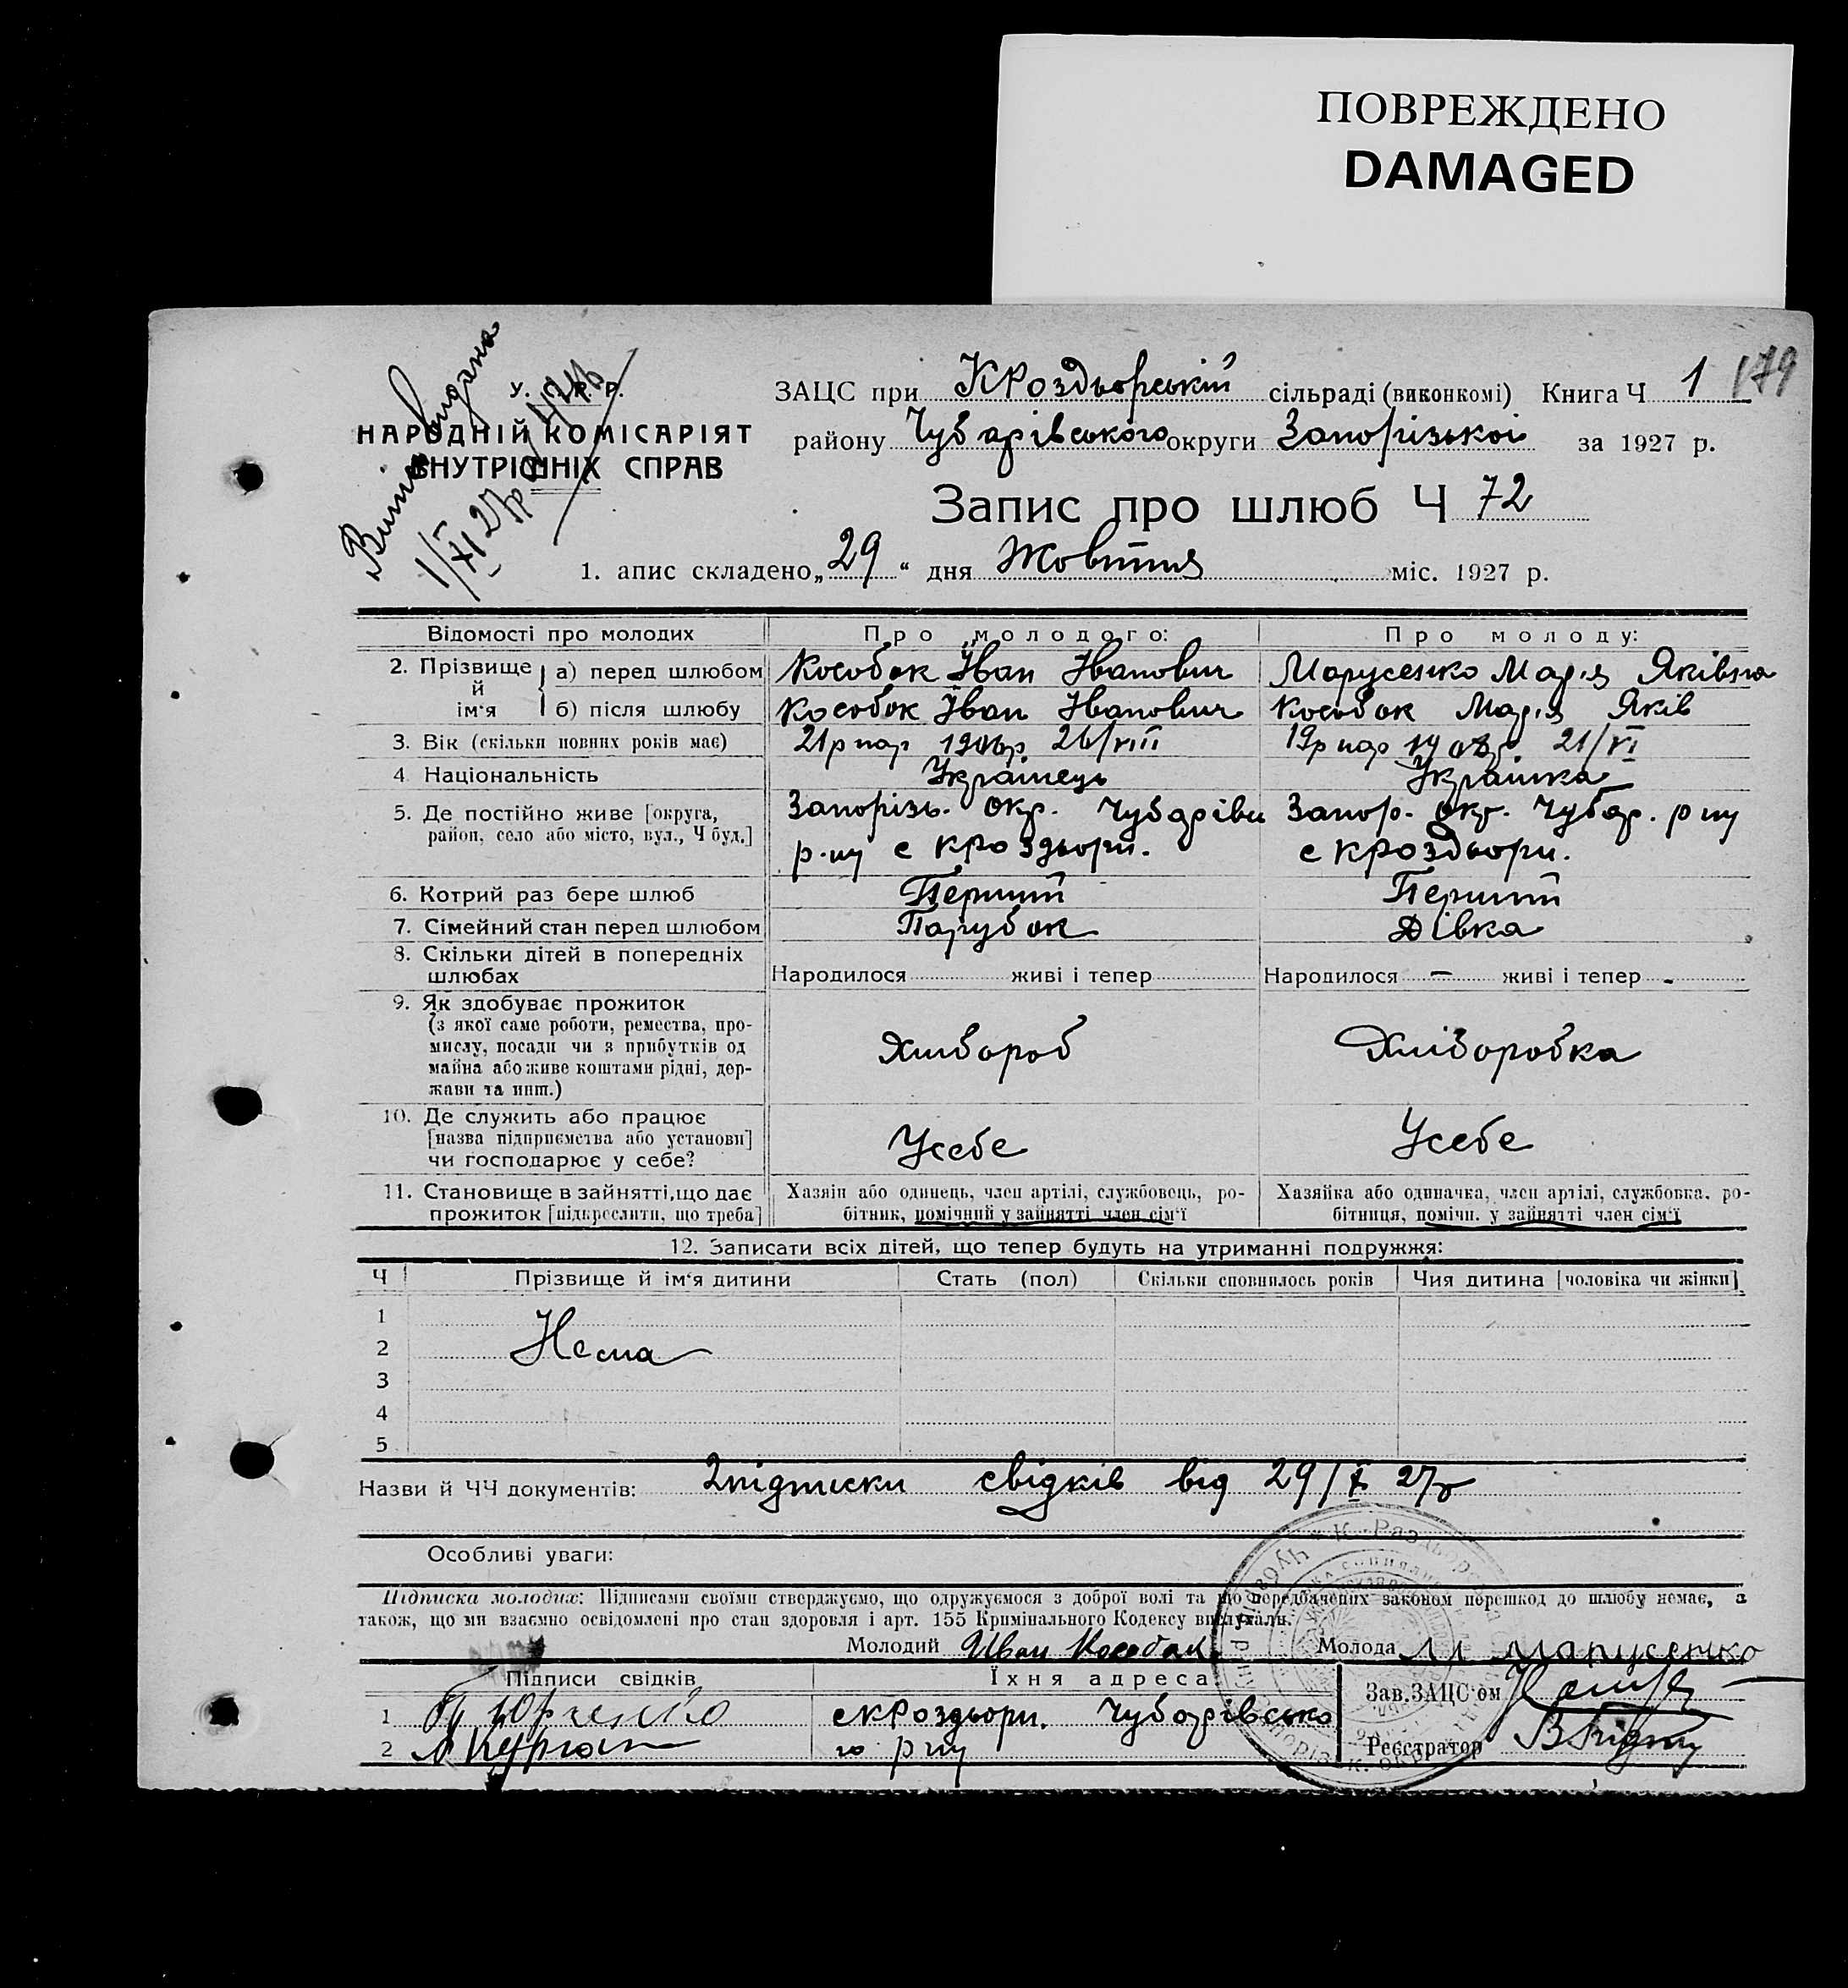 ПОВРЕЖДЕНО
DAMAGED
Витяг видано
1/XI 27р
У. Р. Р.
НАРОДНІЙ КОМІСАРІЯТ
ВНУТРІШНІХ СПРАВ
ЗАЦС при КРоздьорській сільраді (виконкомі) Книга Ч 1 179
району Чубарівського округи Запорізької за 1927 р.
Запис про шлюб Ч 72
1. апис складено „29“ дня Жовтня міс. 1927 р.
Відомості про молодих Про молодого: Про молоду:
2. Прізвище й ім'я а) перед шлюбом Кособок Іван Іванович Марусенко Марія Яківна
б) після шлюбу Кособок Іван Іванович Кособок Марія Яків
3. Вік (скільки повних років має) 21р нар 1906р 26/VIII 19р нар 1908р 21/VI
4. Національність Українець Українка
5. Де постійно живе [округа, Запорізь. окр. Чубарівс Запор. окр. Чубар. р ну
район, село або місто, вул., Ч буд.] р-ну с КРоздьори. с КРоздьори.
6. Котрий раз бере шлюб Перший Перший
7. Сімейний стан перед шлюбом Парубок Дівка
8. Скільки дітей в попередніх
шлюбах Народилося живі і тепер Народилося – живі і тепер -
9. Як здобуває прожиток
(з якої саме роботи, ремества, про-
мислу, посади чи з прибутків од Хлібороб Хліборобка
майна або живе коштами рідні, дер-
жави та инш.)
10. Де служить або працює
[назва підприємства або установи] Усебе Усебе
чи господарює у себе?
11. Становище в зайнятті, що дає Хазяїн або одинець, член артілі, службовець, ро- Хазяйка або одиначка, член артілі, службовка, ро-
прожиток [підкреслити, що треба] бітник, помічний у зайнятті член сім'ї бітниця, помічн. у зайнятті член сім'ї
12. Записати всіх дітей, що тепер будуть на утриманні подружжя:
Ч Прізвище й ім'я дитини Стать (пол) Скільки сповнилось років Чия дитина [чоловіка чи жінки]
1
2 Нема
3
4
5
Назви й ЧЧ документів: 2підписки свідків від 29/X 27р
Особливі уваги:
Підписка молодих: Підписами своїми стверджуємо, що одружуємося з доброї волі та що передбачених законом перешкод до шлюбу немає, а
також, що ми взаємно освідомлені про стан здоровля і арт. 155 Кримінального Кодексу вислухали.
Молодий Иван Кособок Молода М Марусенко
Підписи свідків Їхня адреса Зав. ЗАЦС'ом
1 с КРоздьори. Чубарівсько
2 го р ну Реєстратор